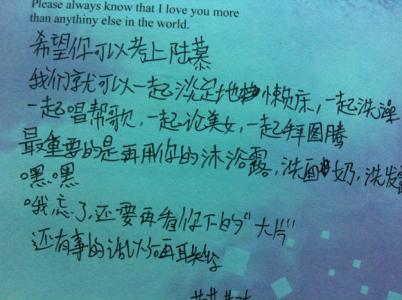 Please always know that I love you more
than anythiny else in the world.
希望你可以考上陆慕
我们就可以一起淡定地懒床，一起洗澡
一起唱帮歌，一起论美女，一起拜图腾
最重要的是再用你的沐浴露，洗面奶，洗发露
嘿嘿
哦忘了，还要再看你下的“大片”
还有事的话以后再联络